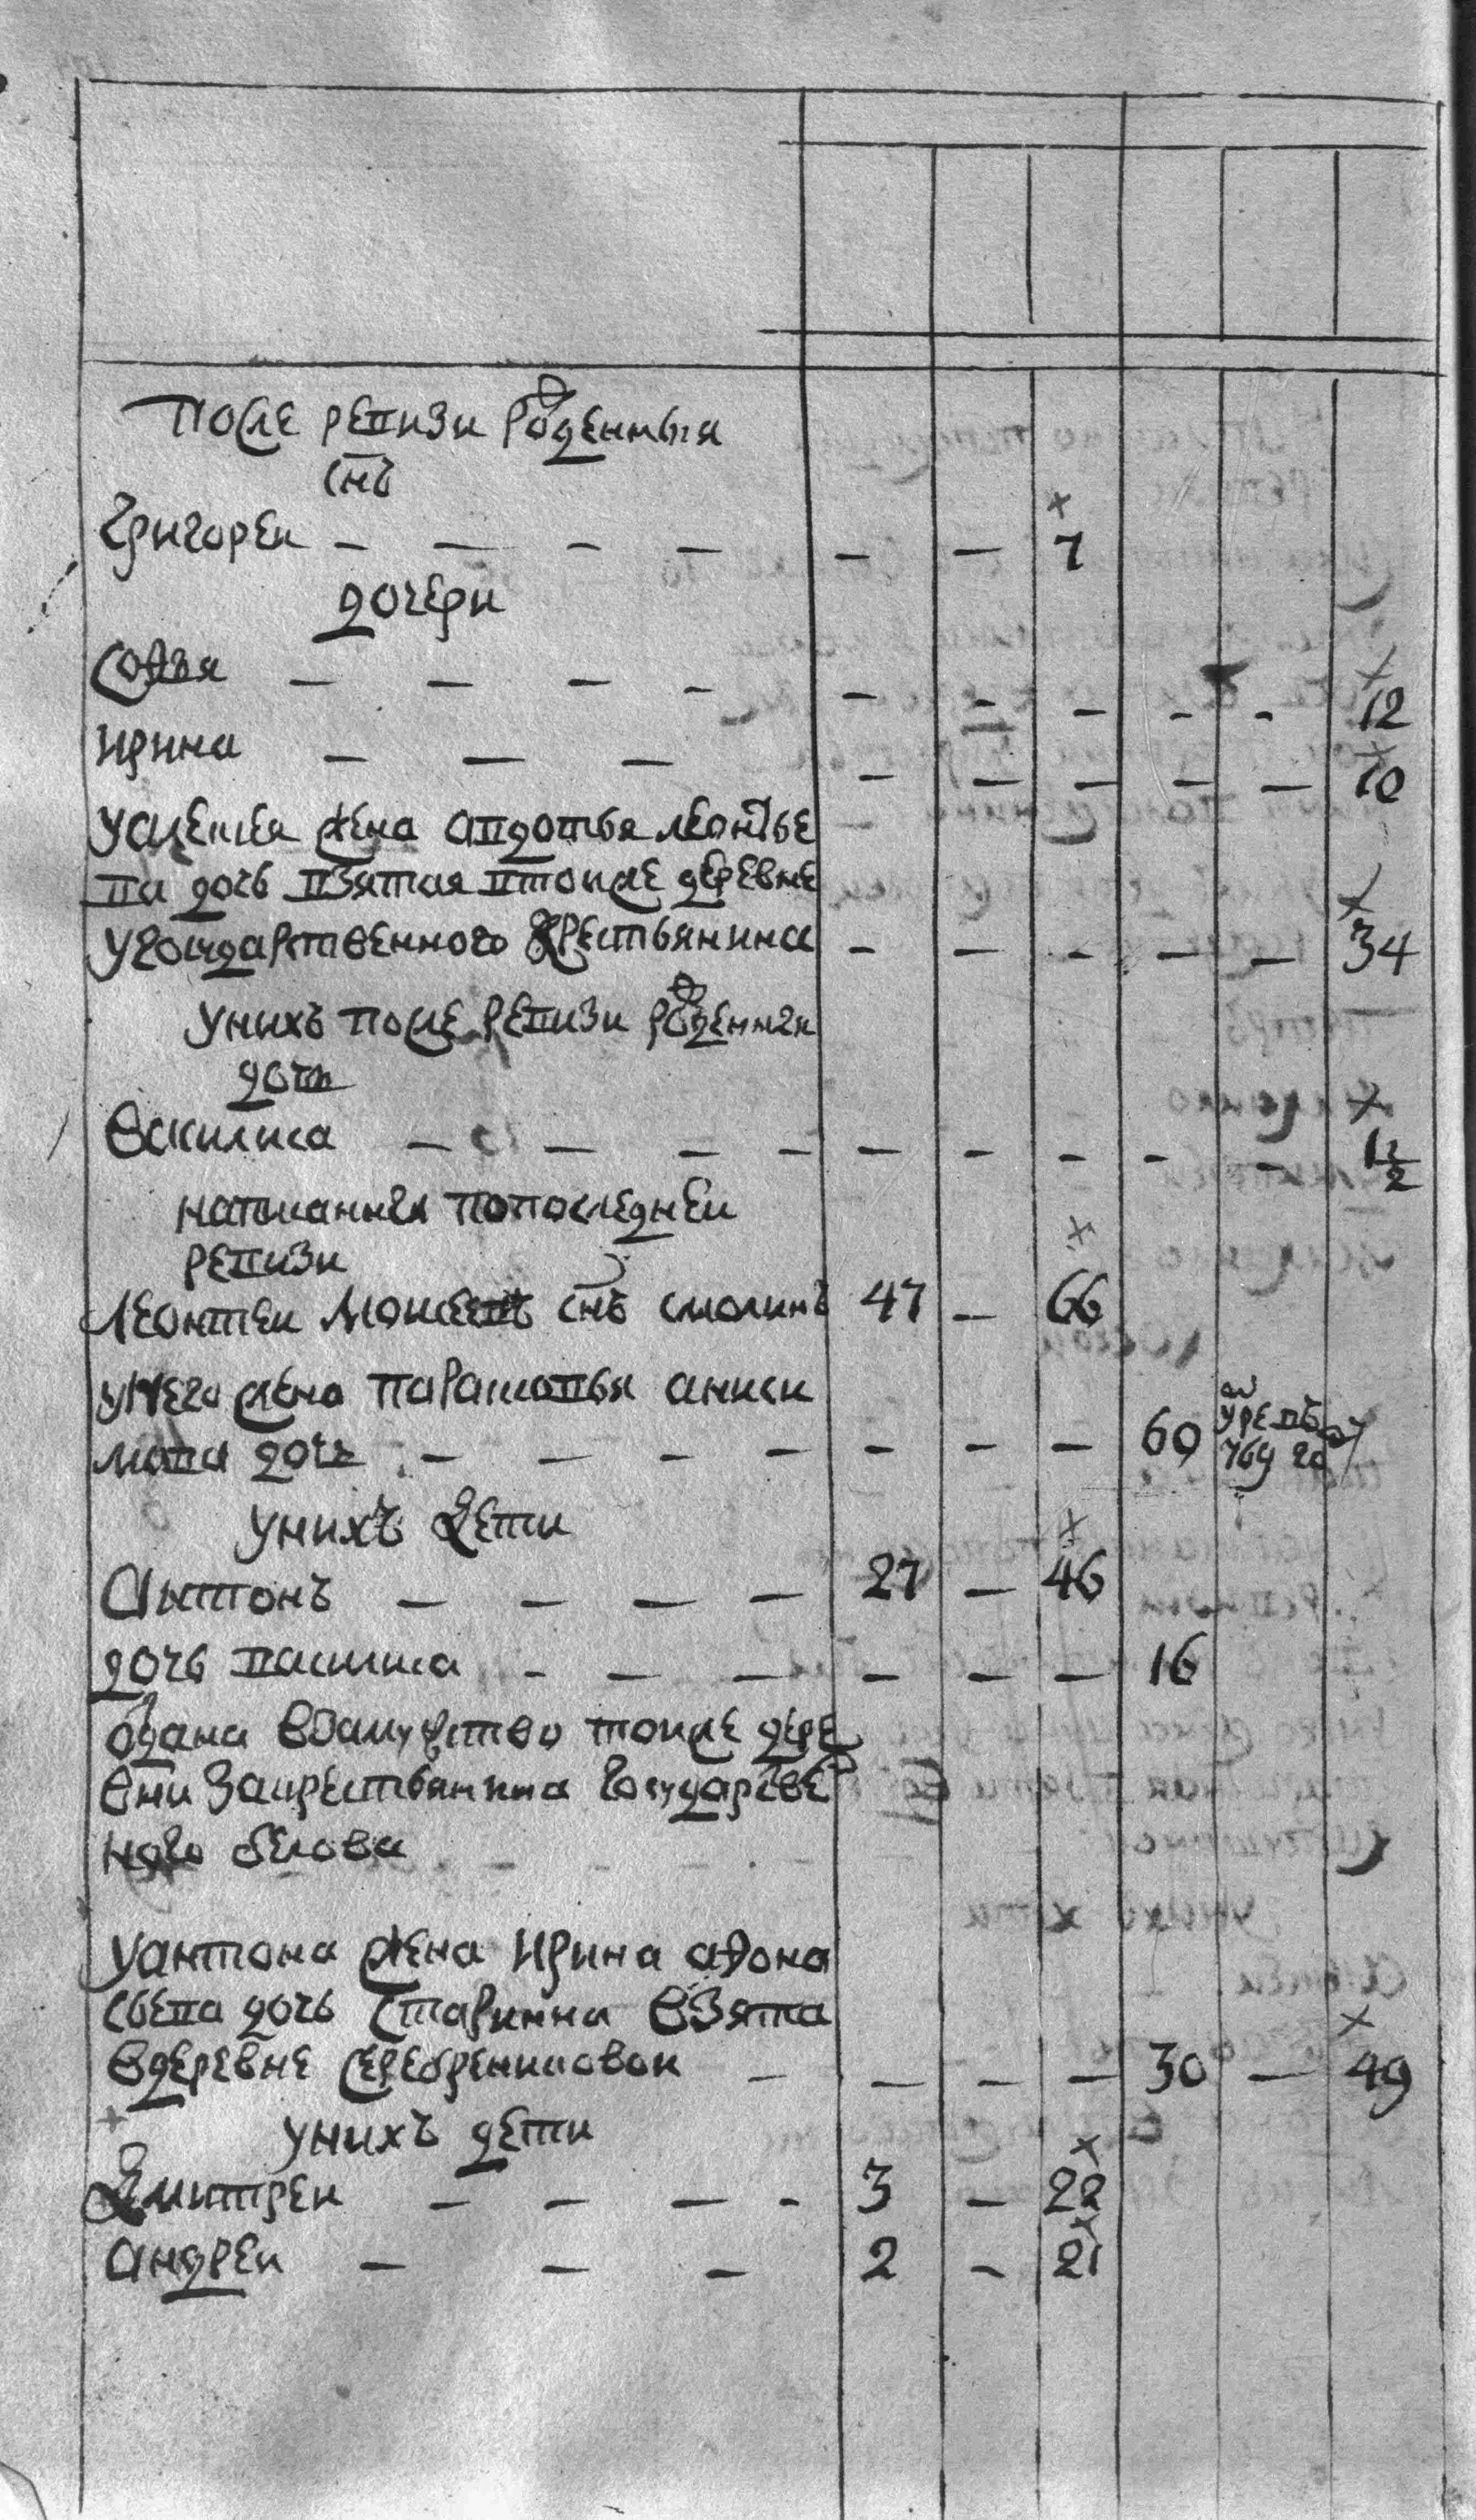 после ревизи рожденныя
снъ
Григореи — — — — — — 7
дочери
Софья — — — — — — — — — 12
Ирина — — — — — — — — 10
жена авдотья леонтье
ва дочь взятая втоиже деревне
угосударственного крестьянина — — — — — 34
унихъ после ревизи рожденная
дочь
Васили́са — — — — — — — — — 1 1/2
написанныя попоследнеи
ревизи
Леонтеи Моисеевъ снъ смолинъ 47 — 66
унего жена парасковья аниси
мова дочь — — — — — — — 60
унихъ дети
Антонъ — — — — 27 — 46
дочь василиса — — — — — — 16
одана взамужство тоиже дере
вни закрестьянина государстве
ного белова
уантона жена Ирина афона
сьева дочь старинна взята
вдеревне серебрениковои — — — — 30 — 49
унихъ дети
Дмитреи — — — — 3 — 22
андреи — — — 2 — 21